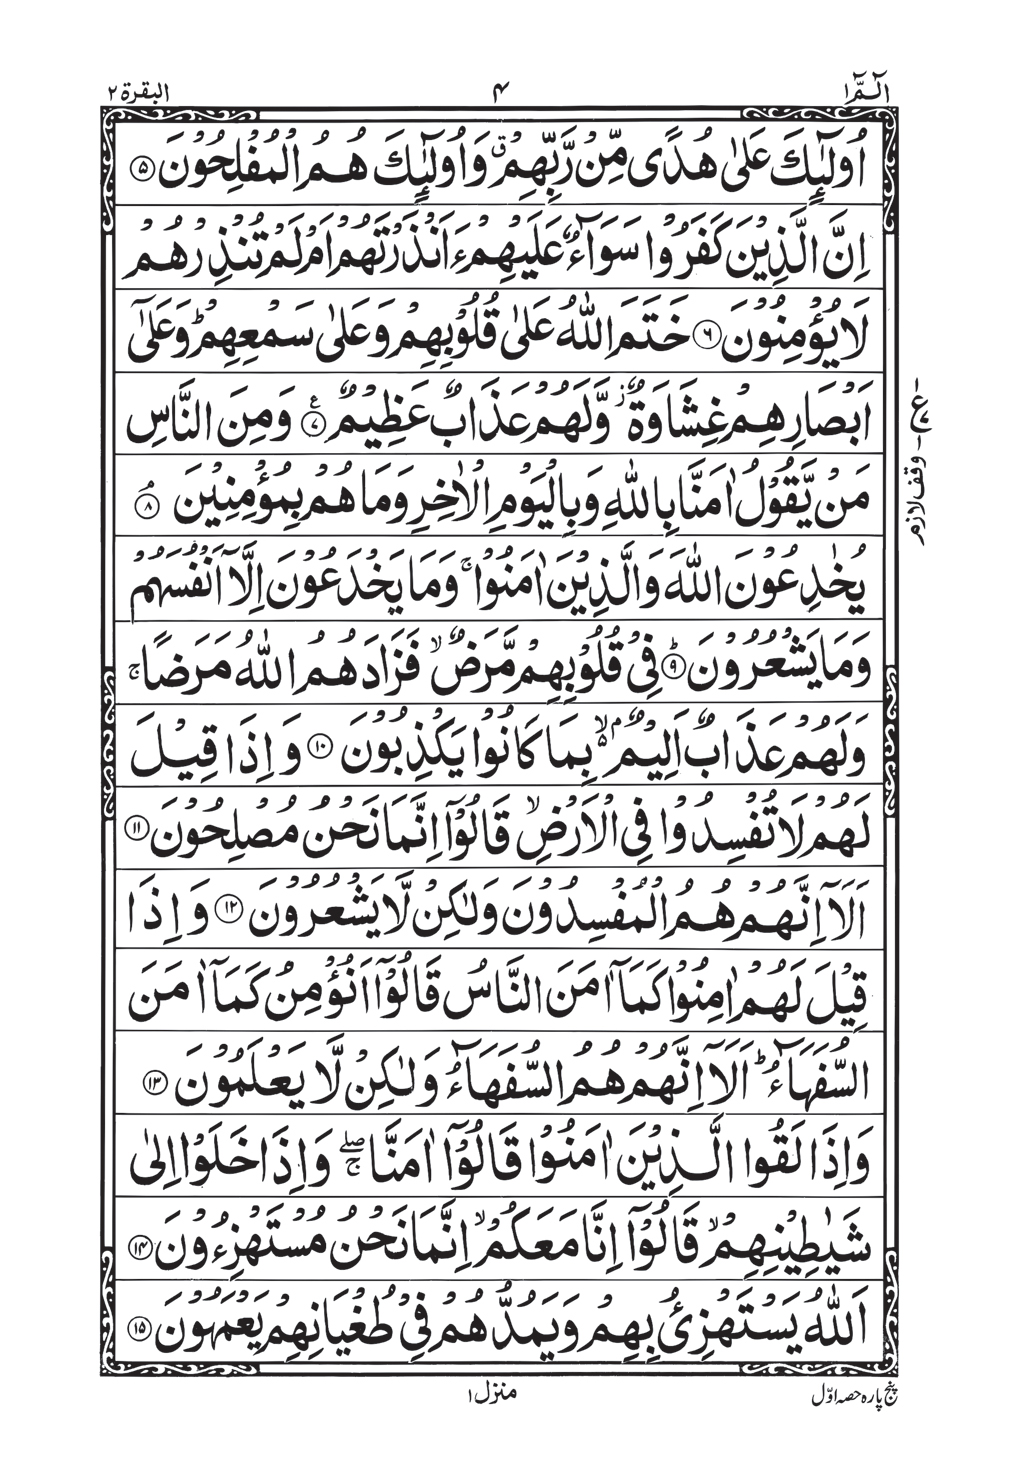 الٓمّٓ ۱
۴
البقرة ۲
اُولٰٓئِكَ عَلٰی هُدًی مِّنْ رَّبِّهِمْ ۗ وَاُولٰٓئِكَ هُمُ الْمُفْلِحُوْنَ ۝۵
اِنَّ الَّذِیْنَ كَفَرُوْا سَوَآءٌ عَلَیْهِمْ ءَاَنْذَرْتَهُمْ اَمْ لَمْ تُنْذِرْهُمْ
لَا یُؤْمِنُوْنَ ۝۶ خَتَمَ اللّٰهُ عَلٰی قُلُوْبِهِمْ وَعَلٰی سَمْعِهِمْ ؕ وَعَلٰۤی
اَبْصَارِهِمْ غِشَاوَةٌ ؗ وَّلَهُمْ عَذَابٌ عَظِیْمٌ ۝۷ وَمِنَ النَّاسِ
مَنْ یَّقُوْلُ اٰمَنَّا بِاللّٰهِ وَبِالْیَوْمِ الْاٰخِرِ وَمَا هُمْ بِمُؤْمِنِیْنَ ۝۸
یُخٰدِعُوْنَ اللّٰهَ وَالَّذِیْنَ اٰمَنُوْا ۚ وَمَا یَخْدَعُوْنَ اِلَّاۤ اَنْفُسَهُمْ
وَمَا یَشْعُرُوْنَ ۝۹ فِیْ قُلُوْبِهِمْ مَّرَضٌ ۙ فَزَادَهُمُ اللّٰهُ مَرَضًا ۚ
وَلَهُمْ عَذَابٌ اَلِیْمٌۢ ۙ۬ بِمَا كَانُوْا یَكْذِبُوْنَ ۝۱۰ وَاِذَا قِیْلَ
لَهُمْ لَا تُفْسِدُوْا فِی الْاَرْضِ ۙ قَالُوْۤا اِنَّمَا نَحْنُ مُصْلِحُوْنَ ۝۱۱
اَلَاۤ اِنَّهُمْ هُمُ الْمُفْسِدُوْنَ وَلٰكِنْ لَّا یَشْعُرُوْنَ ۝۱۲ وَاِذَا
قِیْلَ لَهُمْ اٰمِنُوْا كَمَاۤ اٰمَنَ النَّاسُ قَالُوْۤا اَنُؤْمِنُ كَمَاۤ اٰمَنَ
السُّفَهَآءُ ؕ اَلَاۤ اِنَّهُمْ هُمُ السُّفَهَآءُ وَلٰكِنْ لَّا یَعْلَمُوْنَ ۝۱۳
وَاِذَا لَقُوا الَّذِیْنَ اٰمَنُوْا قَالُوْۤا اٰمَنَّا ۖۚ وَاِذَا خَلَوْا اِلٰی
شَیٰطِیْنِهِمْ ۙ قَالُوْۤا اِنَّا مَعَكُمْ ۙ اِنَّمَا نَحْنُ مُسْتَهْزِءُوْنَ ۝۱۴
اَللّٰهُ یَسْتَهْزِئُ بِهِمْ وَیَمُدُّهُمْ فِیْ طُغْیَانِهِمْ یَعْمَهُوْنَ ۝۱۵
ع
وقف لازم
پنج پاره حصه اوّل
منزل ۱